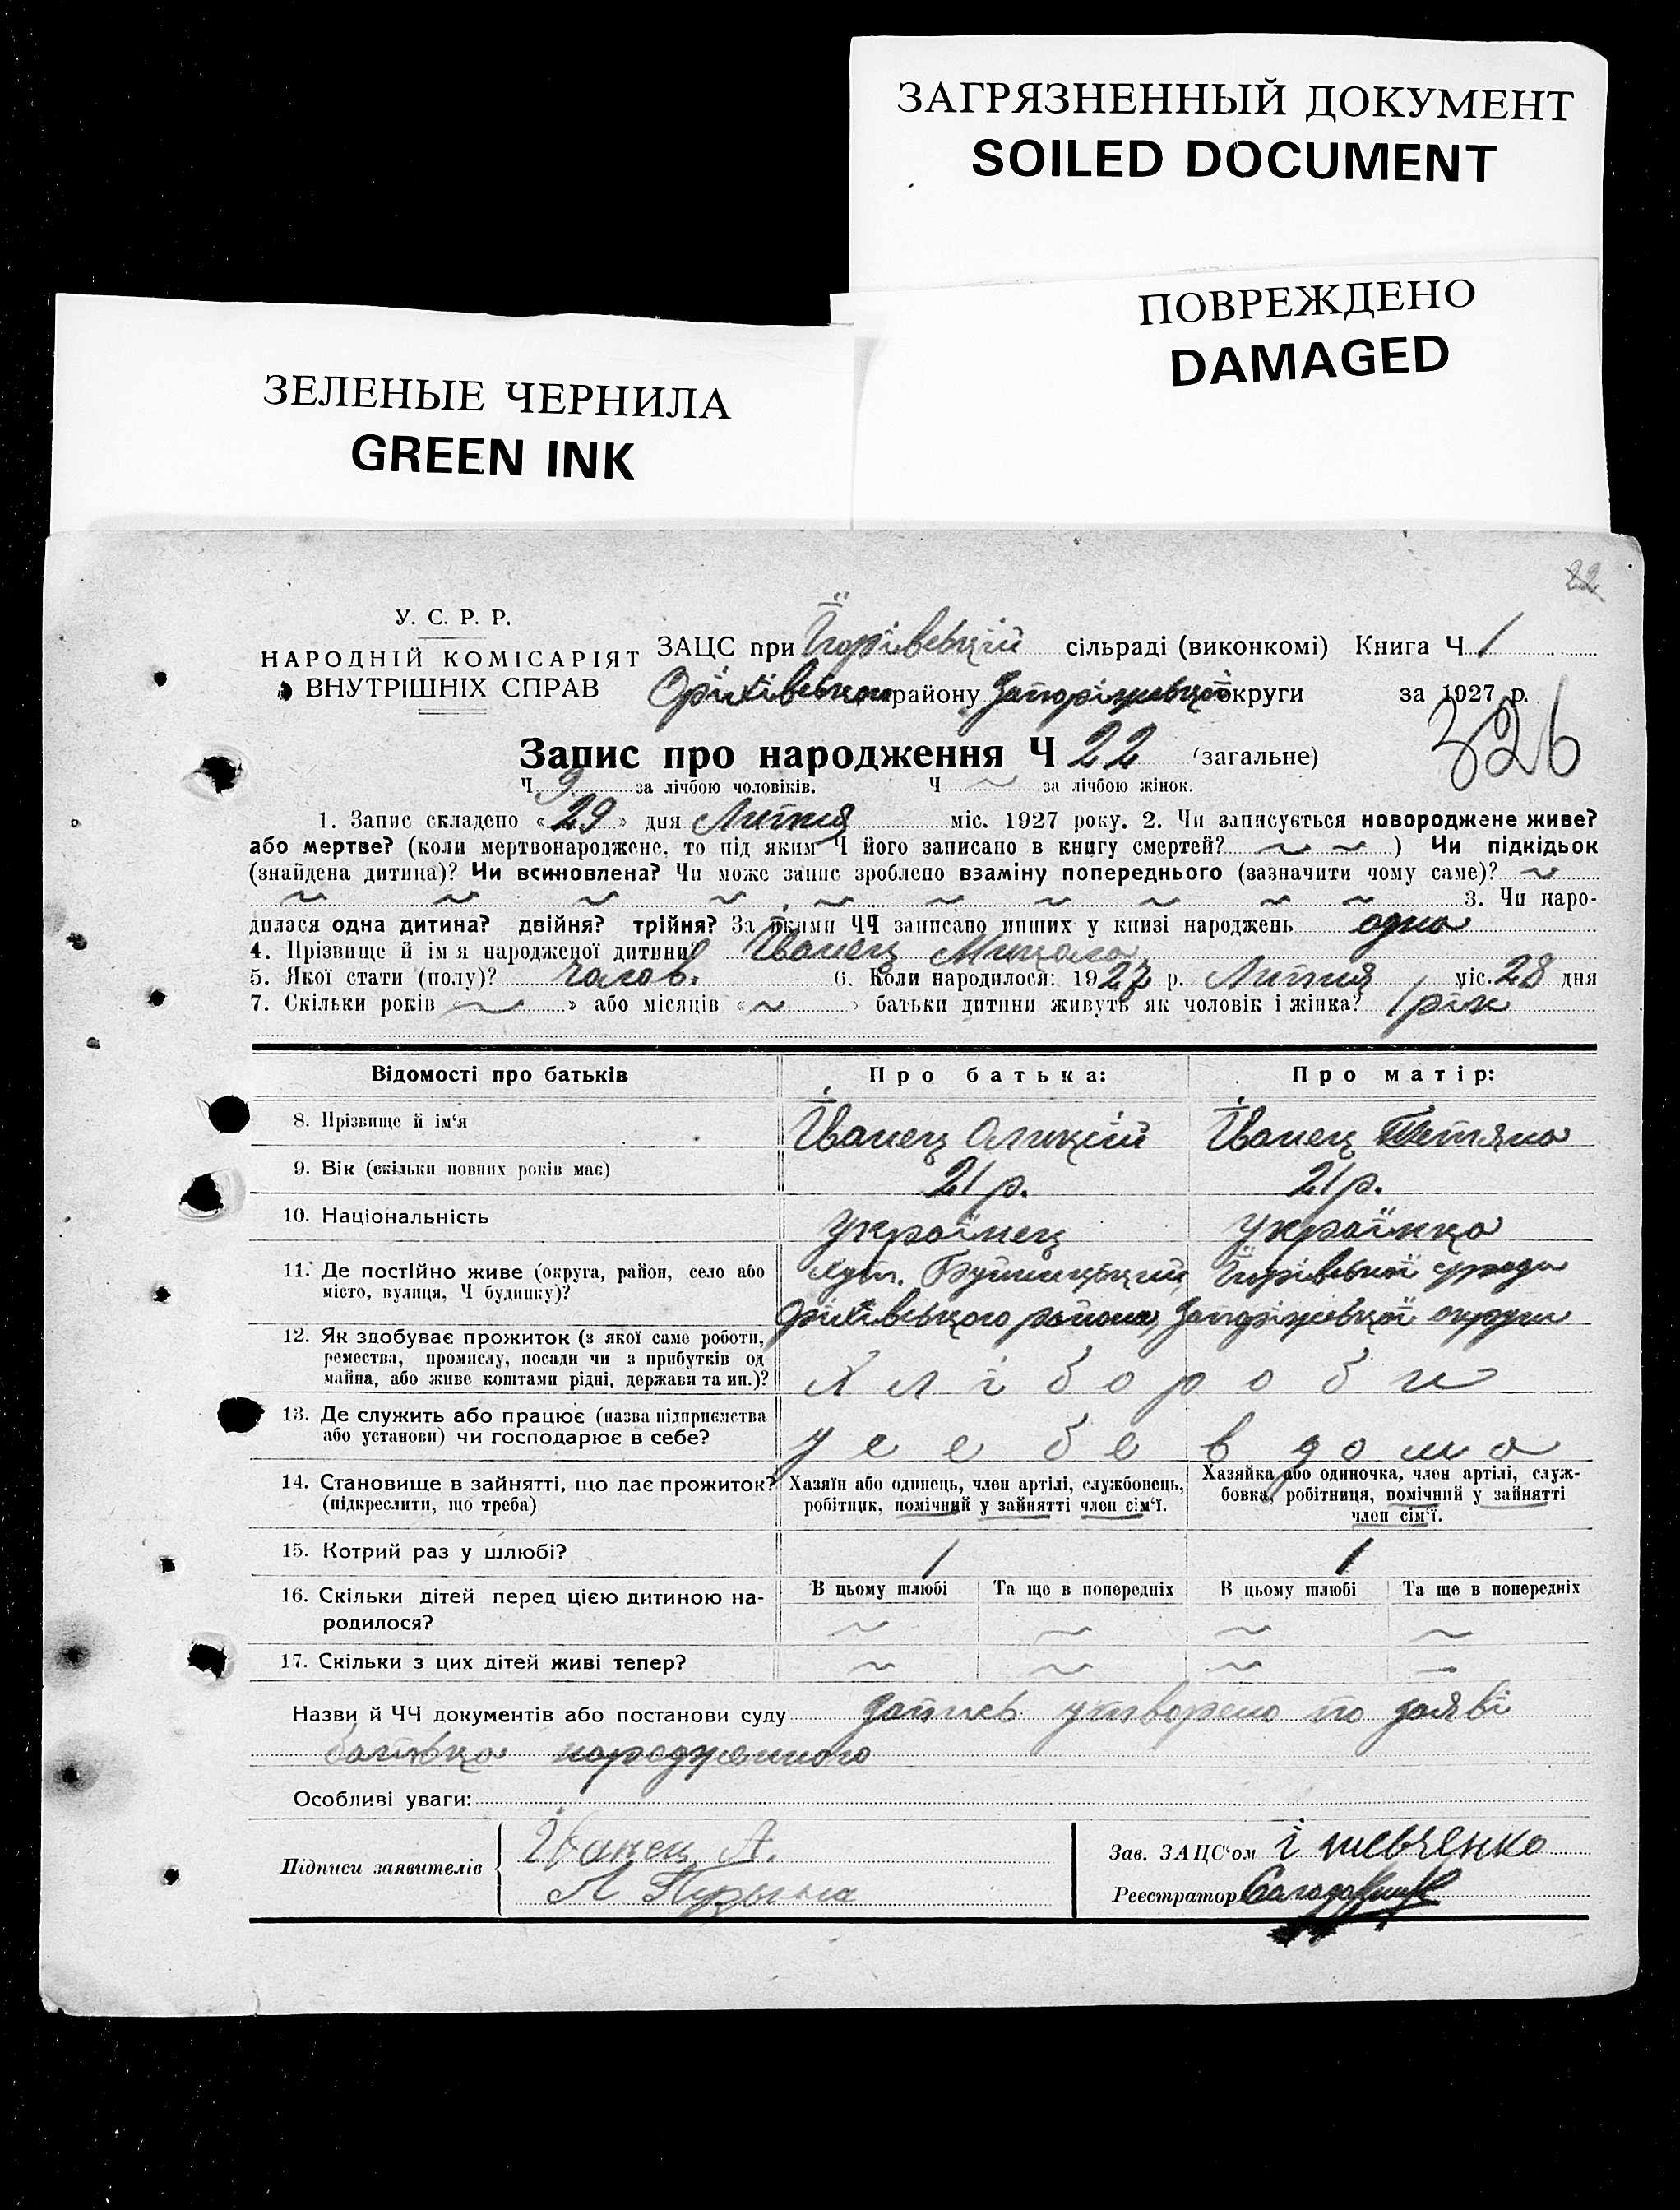 ЗАГРЯЗНЕННЫЙ ДОКУМЕНТ
SOILED DOCUMENT
ПОВРЕЖДЕНО
DAMAGED
ЗЕЛЕНЫЕ ЧЕРНИЛА
GREEN INK
22
У. С. Р. Р.
НАРОДНІЙ КОМІСАРІЯТ
ВНУТРІШНІХ СПРАВ
ЗАЦС при сільраді (виконкомі) Книга Ч 1
Оріхівської району Запоріжської округи за 1927 р.
326
Запис про народження Ч 22 (загальне)
Ч 9 за лічбою чоловіків. Ч ~ за лічбою жінок.
1. Запис складено «29» дня Липня міс. 1927 року. 2. Чи записується новороджене живе?
або мертве? (коли мертвонароджене, то під яким Ч його записано в книгу смертей? ~ ~ ) Чи підкідьок
(знайдена дитина)? Чи всиновлена? Чи може запис зроблено взаміну попереднього (зазначити чому саме)? ~
~ ~ ~ ~ ~ ~ ~ ~ ~ 3. Чи наро-
дилася одна дитина? двійня? трійня? За якими ЧЧ записано инших у книзі народжень одна
4. Прізвище й ім'я народженої дитини? Іванец Микола
5. Якої стати (полу)? чолов. 6. Коли народилося: 1927 р. Липня міс. 28 дня
7. Скільки років ~ » або місяців «~ » батьки дитини живуть як чоловік і жінка? 1 рік
Відомості про батьків Про батька: Про матір:
8. Прізвище й ім'я Іванец Оликсій Іванец Тетяна
9. Вік (скільки повних років має) 21 р. 21 р.
10. Національність українец українка
11. Де постійно живе (округа, район, село або хут. сільради
місто, вулиця, Ч будинку)? Оріхівського района, Запоріжської округи
12. Як здобуває прожиток (з якої саме роботи,
ремества, промислу, посади чи з прибутків од
майна, або живе коштами рідні, держави та ин.)? хлібороби
13. Де служить або працює (назва підприємства
або установи) чи господарює в себе? у себе в дома
14. Становище в зайнятті, що дає прожиток? Хазяїн або одинець, член артілі, службовець, Хазяйка або одиночка, член артілі, служ-
(підкреслити, що треба) робітник, помічний у зайнятті член сім'ї. бовка, робітниця, помічний у зайнятті
член сім'ї.
15. Котрий раз у шлюбі? 1 1
16. Скільки дітей перед цією дитиною на- В цьому шлюбі Та ще в попередніх В цьому шлюбі Та ще в попередніх
родилося? ~ ~ ~ ~
17. Скільки з цих дітей живі тепер? ~ ~ ~ ~
Назви й ЧЧ документів або постанови суду запись утворено по заяві
батька народженного
Особливі уваги:
Підписи заявителів Іванец А. Зав. ЗАЦС'ом І Шевченко
Л Реєстратор